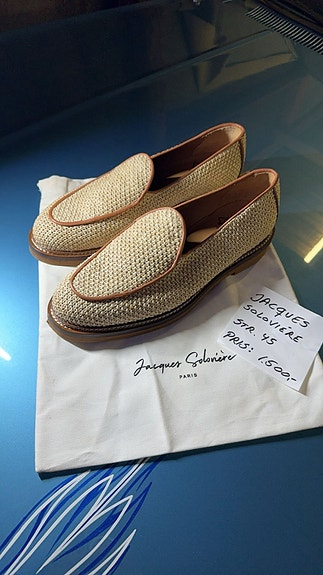 JACQUES
SOLOVIÈRE
STR. 45
PRIS: 1.500,-
Jacques Solovière
PARIS